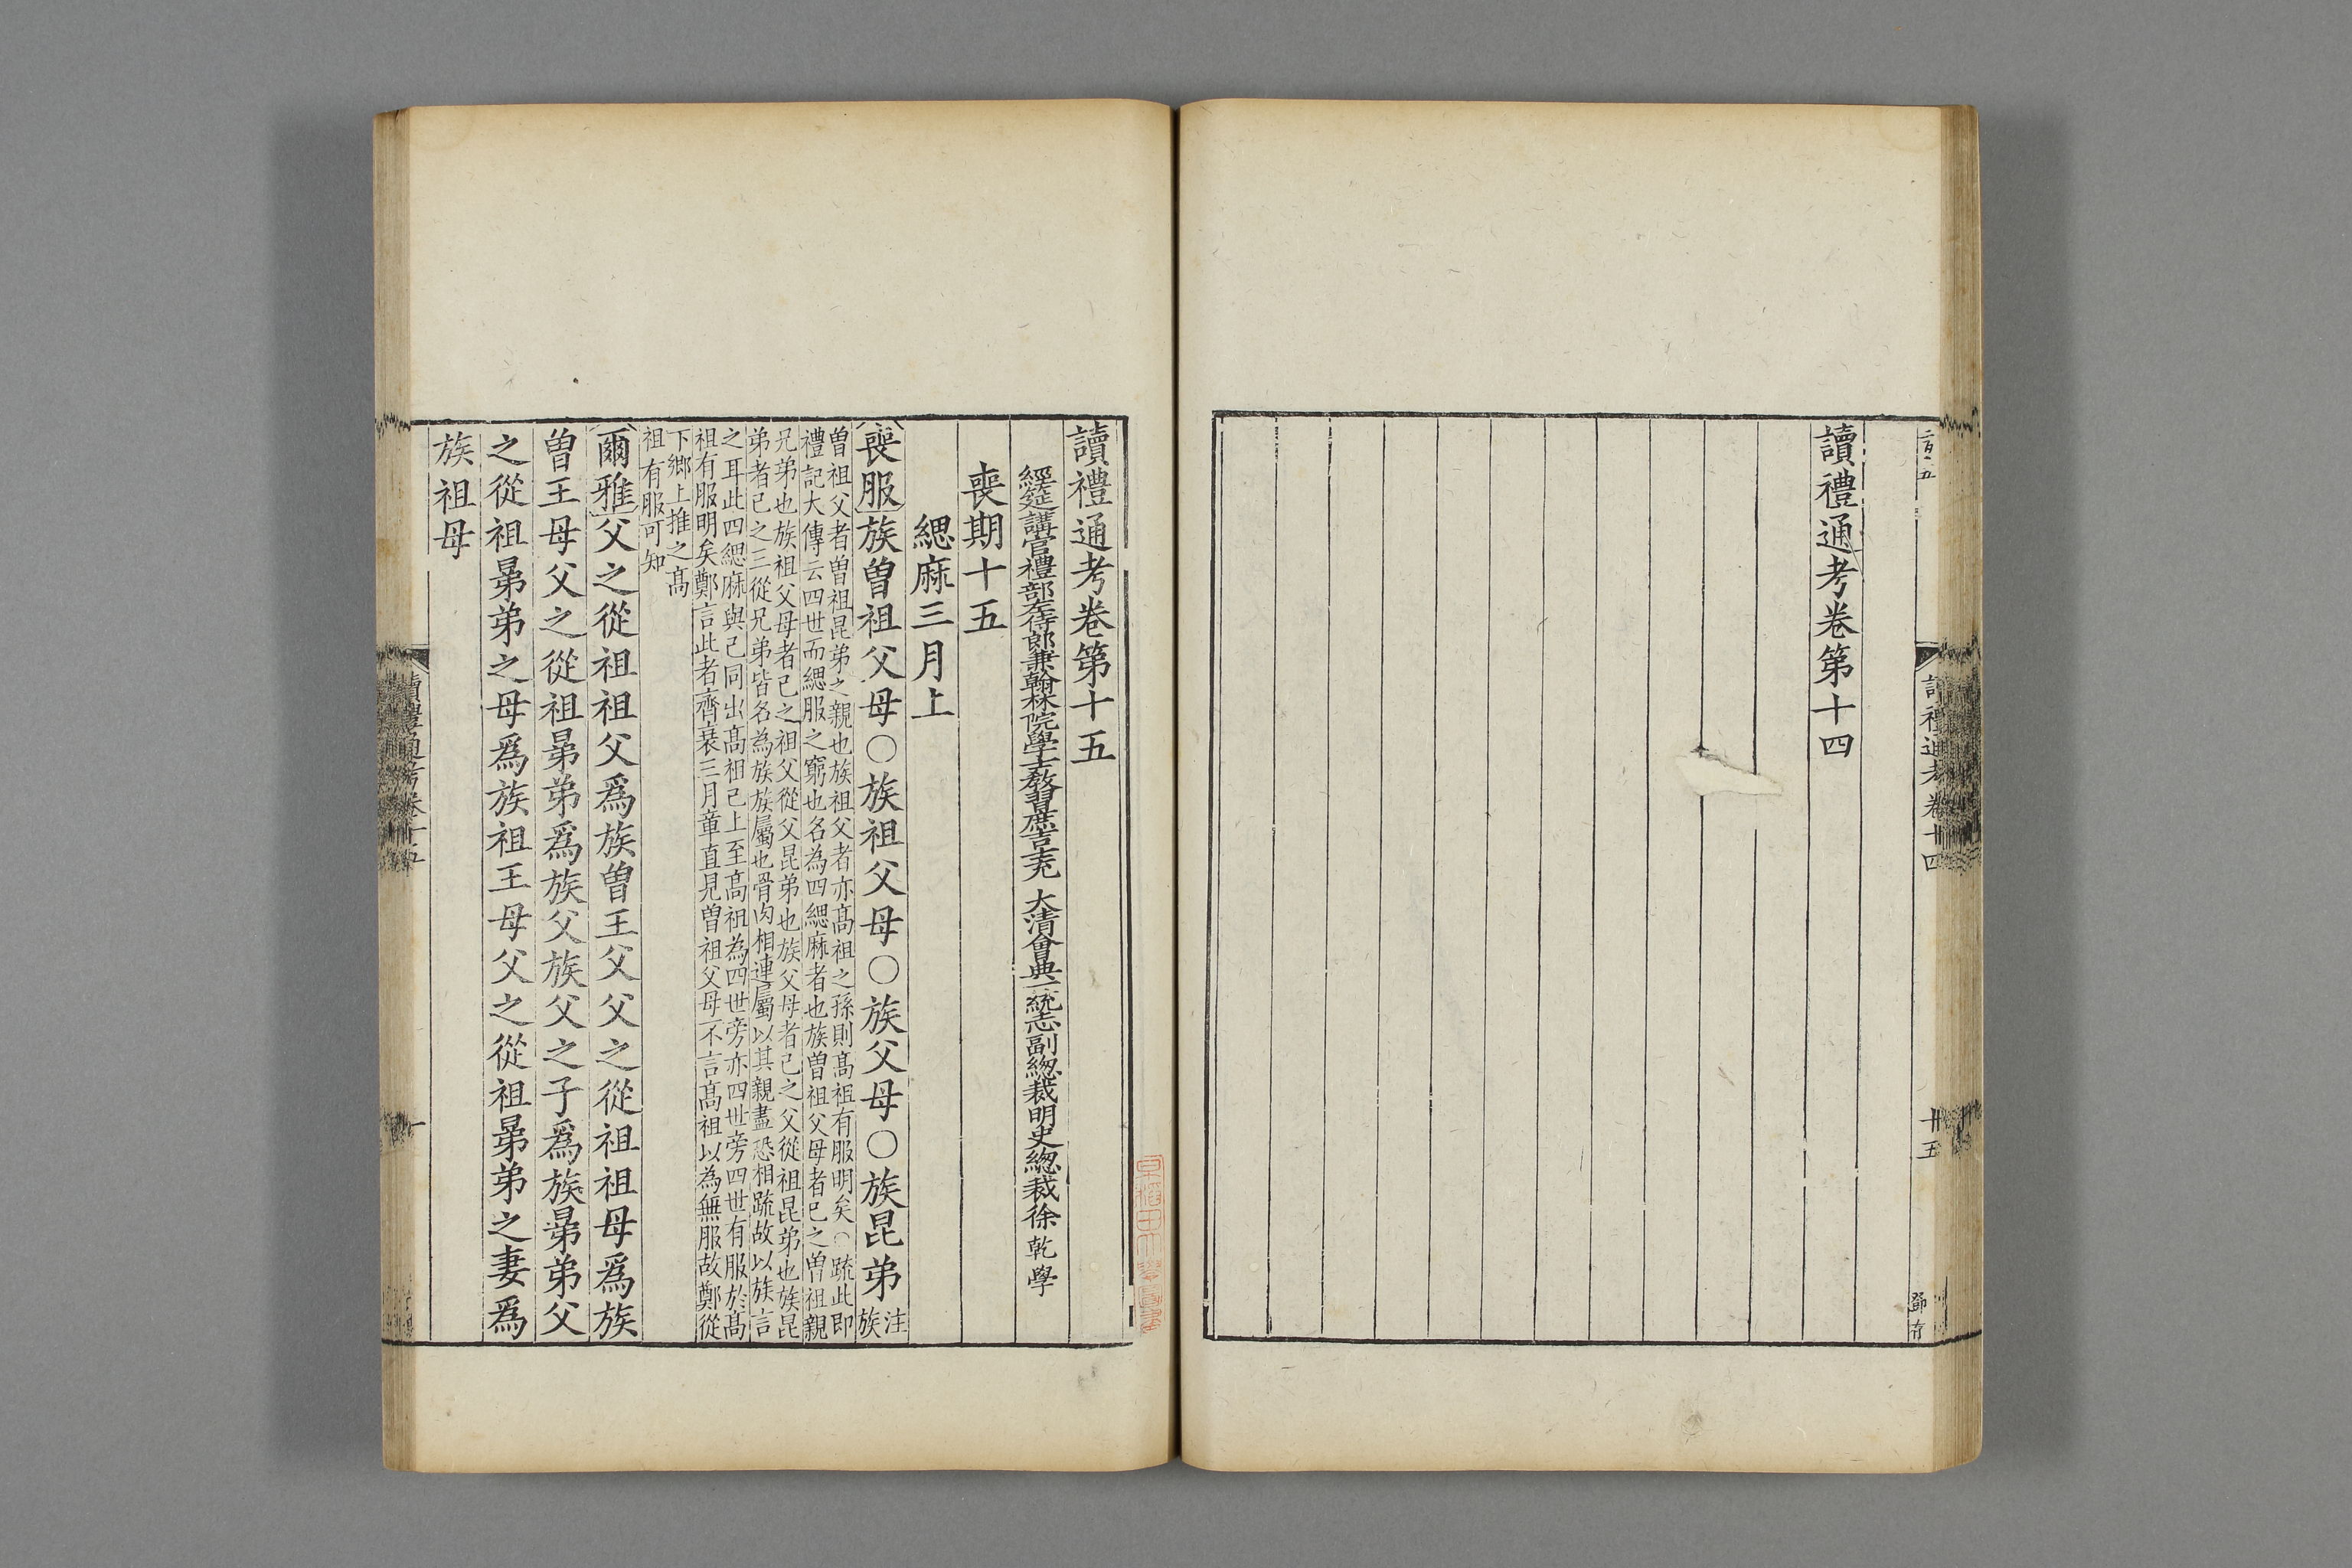 讀禮通考卷第十四
讀禮通考卷十四
廿五
讀禮通考卷第十五
經筵講官禮部左侍郎兼翰林院學士教習庶吉士充 大清會典一統志副緫裁明史緫裁徐乾學
喪期十五
緦麻三月上
喪服族曽祖父母〇族祖父母〇族父母〇族昆弟注族
曽祖父者曽祖昆弟之親也族祖父者亦髙祖之孫則髙祖有服明矣〇䟽此即
禮記大傳云四世而緦服之窮也名為四緦麻者也族曽祖父母者己之曽祖親
兄弟也族祖父母者己之祖父從父昆弟也族父母者己之父從祖昆弟也族昆
弟者己之三從兄弟皆名為族族屬也骨肉相連屬以其親盡恐相䟽故以族言
之耳此四緦麻與己同出髙祖己上至髙祖為四世旁亦四世旁四世有服於髙
祖有服明矣鄭言此者齊衰三月章直見曽祖父母不言髙祖以為無服故鄭從
下鄉上推之髙
祖有服可知
爾雅父之從祖祖父爲族曽王父父之從祖祖母爲族
曽王母父之從祖晜弟爲族父族父之子爲族晜弟父
之從祖晜弟之母爲族祖王母父之從祖晜弟之妻爲
族祖母
讀禮通考卷十五
一